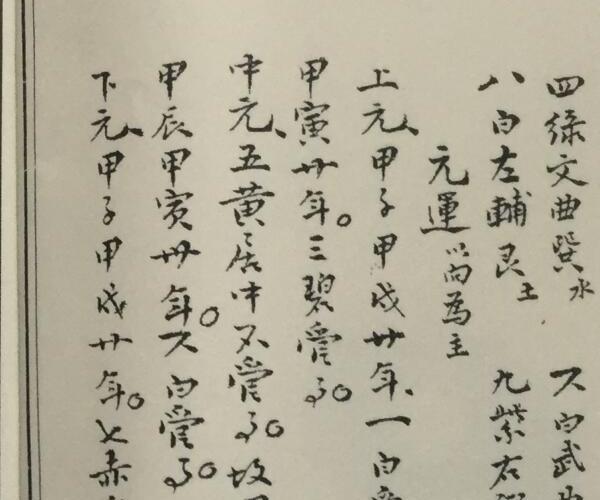 四綠文曲巽水 六白武
八白左輔艮土 九紫右
元運以向為主
上元、甲子甲戌廿年、一白
甲寅廿年。三碧管局。
中元、五黃居中不管局。故
甲辰甲寅卅年。六白管局。
下元、甲子甲戌廿年。七赤